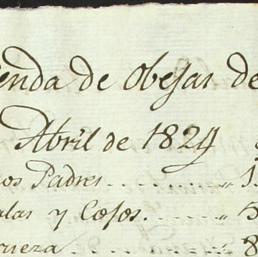 ienda de Obejas de
Abril de 1824
os Padres ........ „ 1
alas y Cojos. .... „ 5
quera ........ „ 8